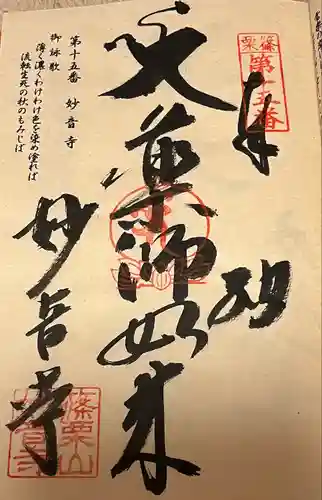 奉拝
篠栗
第十五番
薬師如来
妙音寺
第十五番 妙音寺
御詠歌
薄く濃くわけわけ色を染め塗れば
流転生死の秋のもみじば
篠栗山
妙音寺